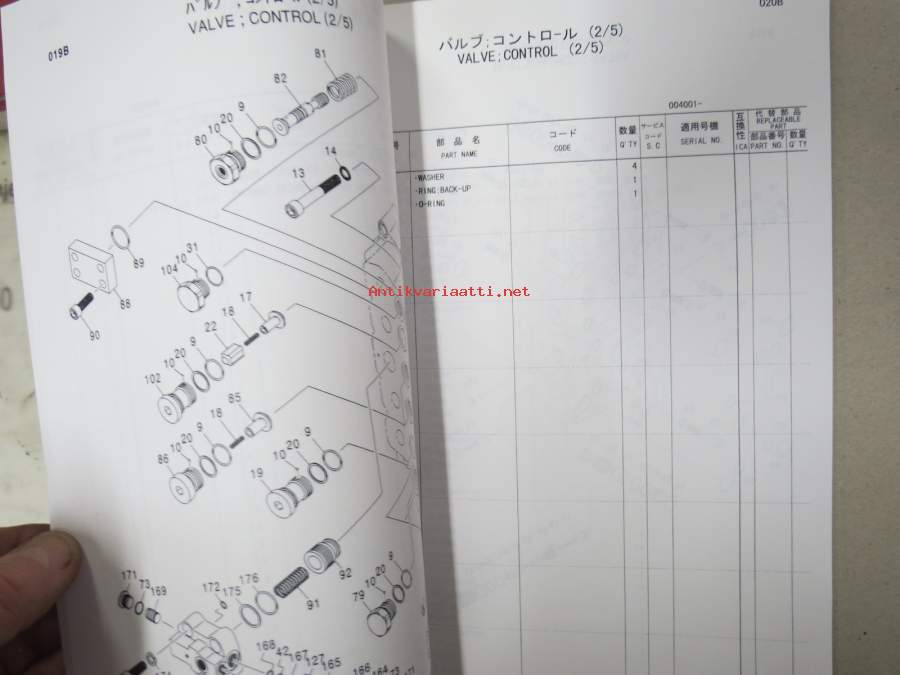 バルブ;コントロール (2/5)
VALVE ; CONTROL (2/5)
019B
81
82
9
20
10
80
14
13
89
88
90
31
10
104
17
18
22
9
20
10
102
85
18
9
20
10
86
9
20
10
19
92
91
176
175
172
171
73
169
9
10
20
79
168
42
167
127
165
020B
バルブ;コントロール (2/5)
VALVE;CONTROL (2/5)
004001-
号 部品名 コード 数量 サービスコード 適用号機 互換性 代替部品
PART NAME CODE Q'TY S.C SERIAL NO. ICA REPLACEABLE PART
部品番号 数量
PART NO. Q'TY
·WASHER 4
·RING;BACK-UP 1
·O-RING 1
Antikvariaatti.net